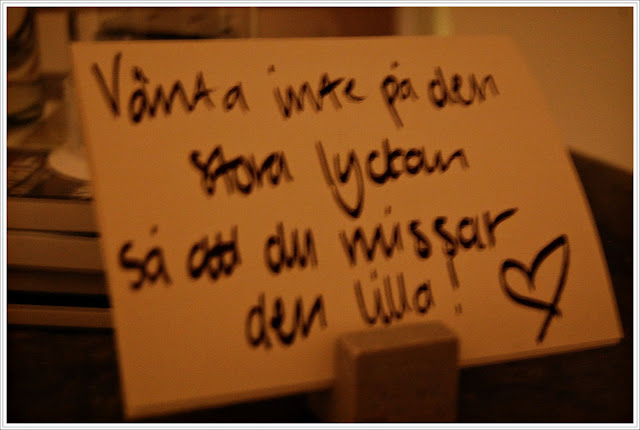 Vänta inte på den
stora lyckan
så att du missar
den lilla!